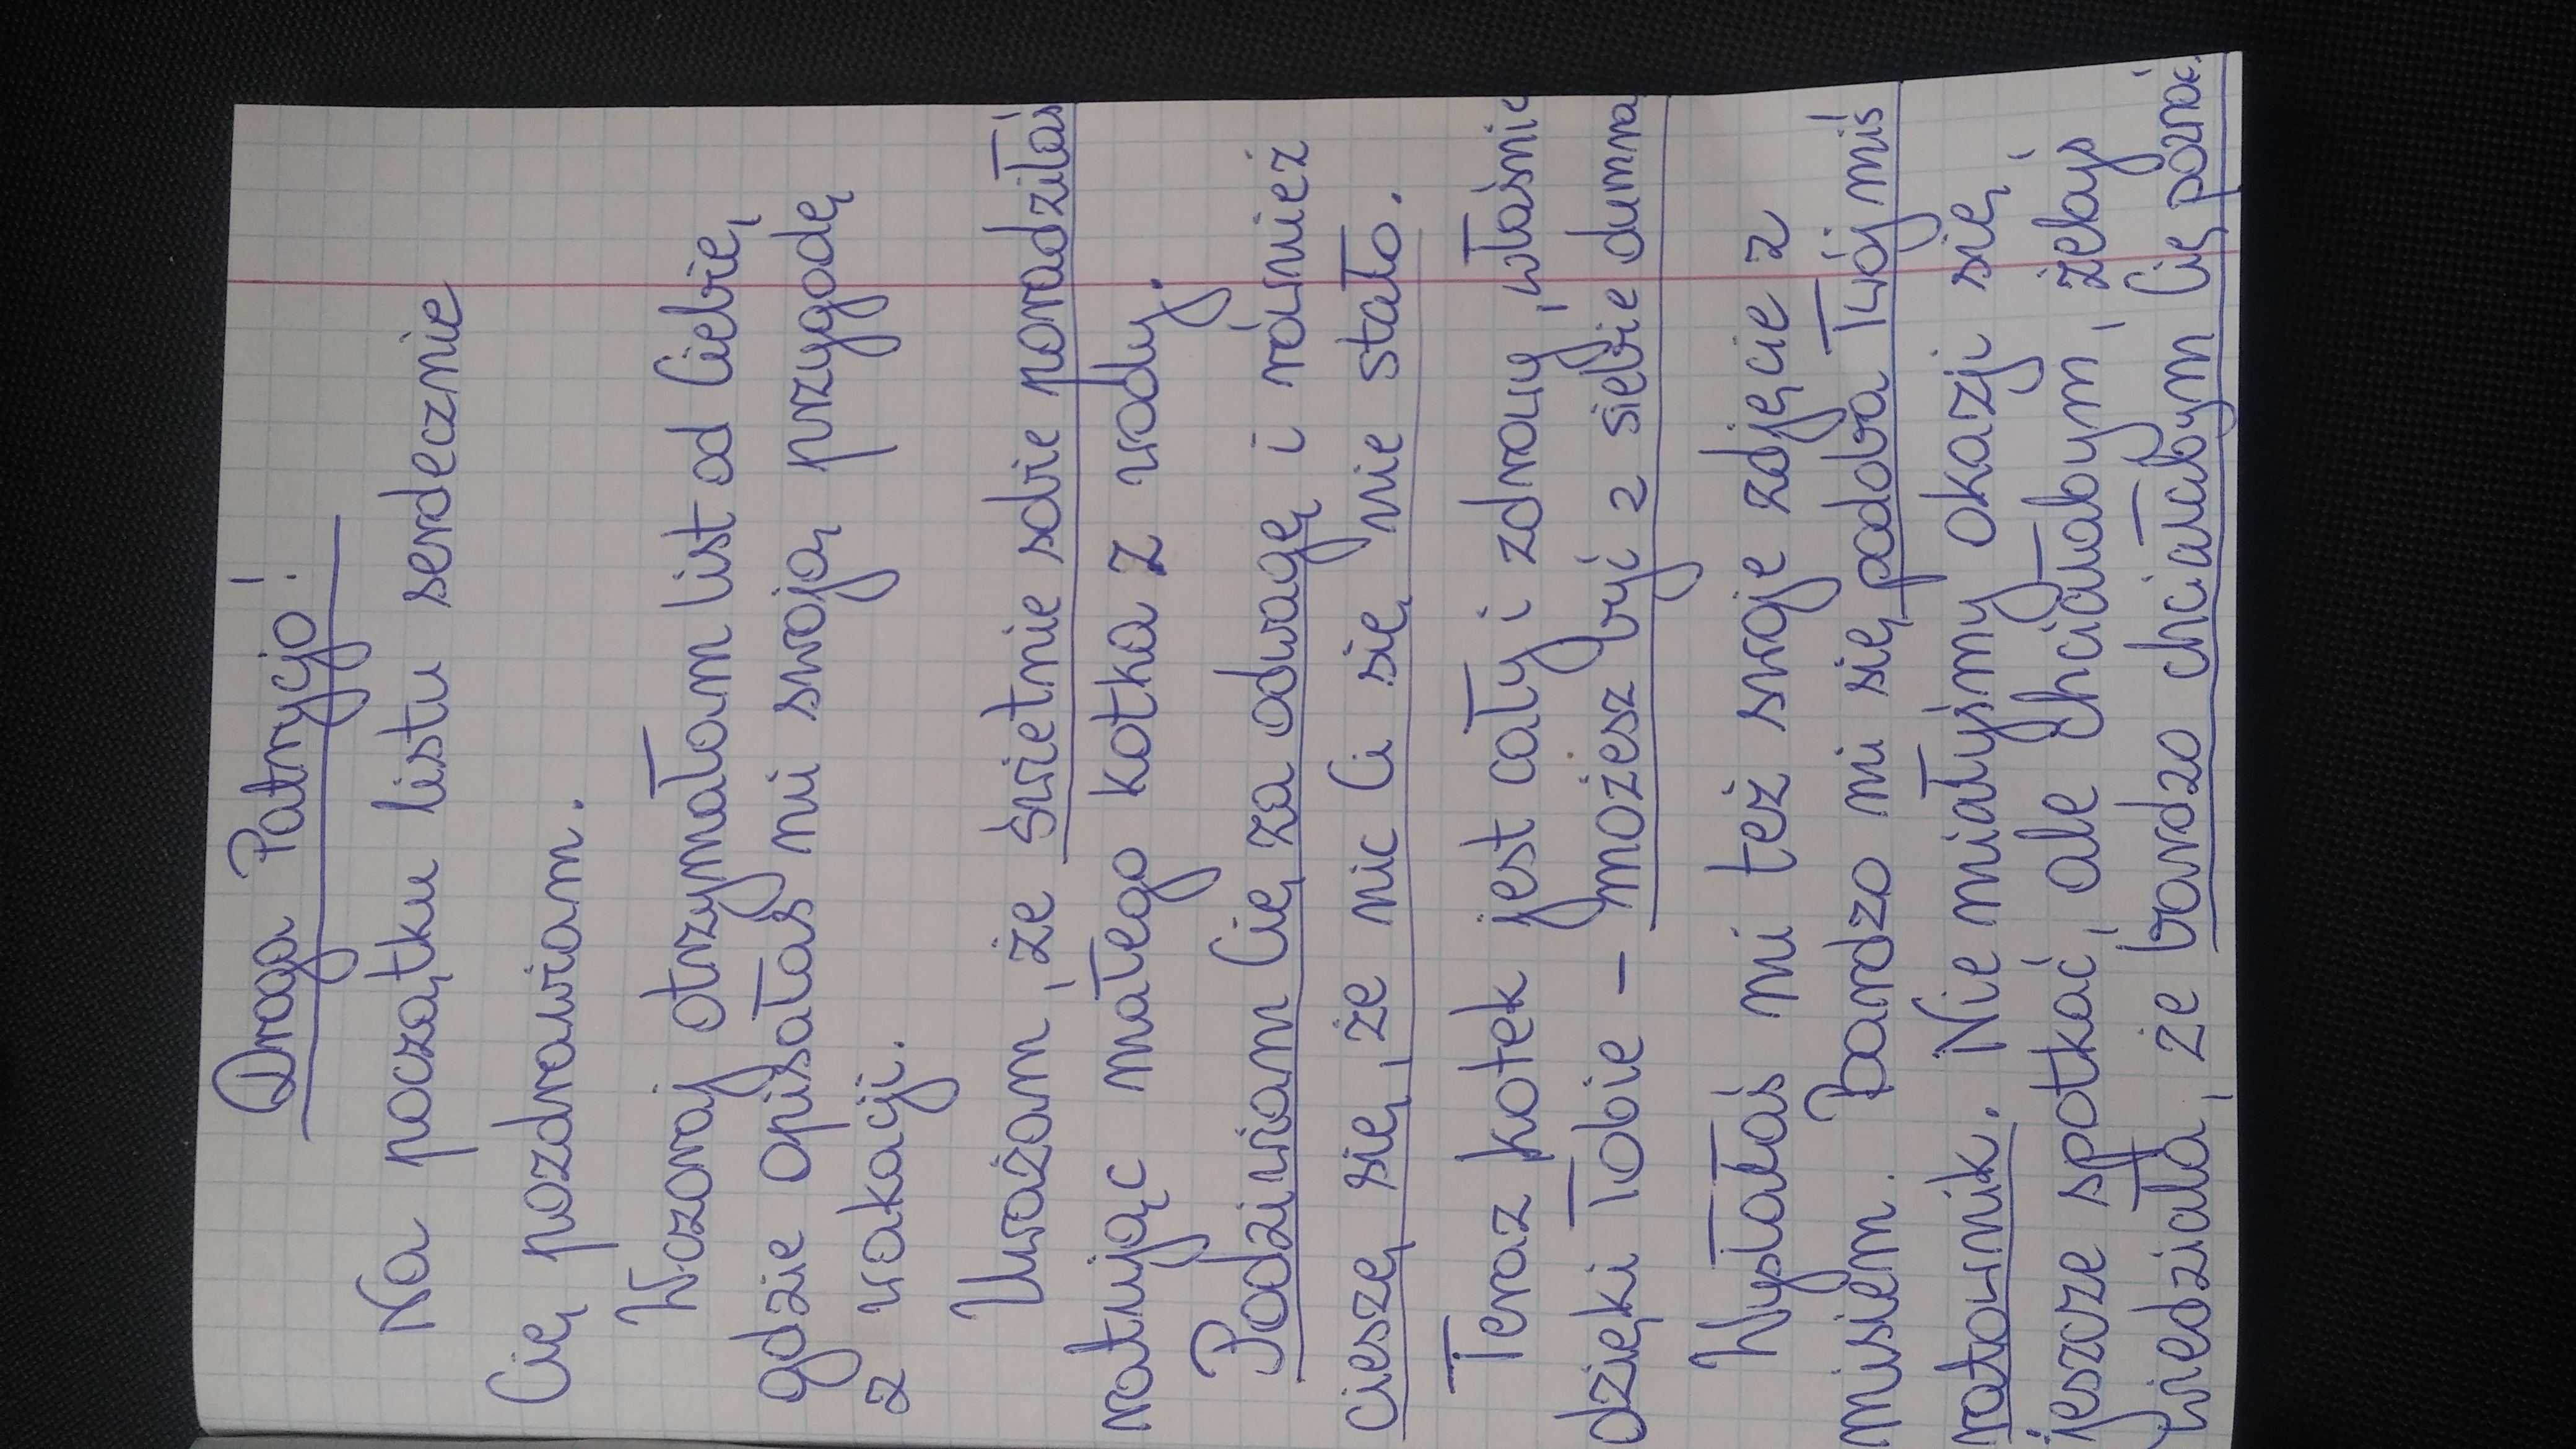 Droga Patrycjo!
Na początku listu serdecznie
Cię pozdrawiam.
Wczoraj otrzymałam list od Ciebię,
gdzie opisałaś mi swoją przygodę
z wakacji.
Uważam, że świetnie sobie poradziłaś
ratując małego kotka z wody.
Podziwiam Cię za odwagę i również
cieszę się, że nic Ci się nie stało.
Teraz kotek jest cały i zdrowy, właśnie
dzięki Tobie - możesz być z siebie dumna
Wysłałaś mi też swoje zdjęcie z
misiem. Bardzo mi się podoba Twój miś
ratownik. Nie miałyśmy okazji się,
jeszcze spotkać, ale chciałabym, żebyś
wiedziała, że bardzo chciałabym Cię poznać.